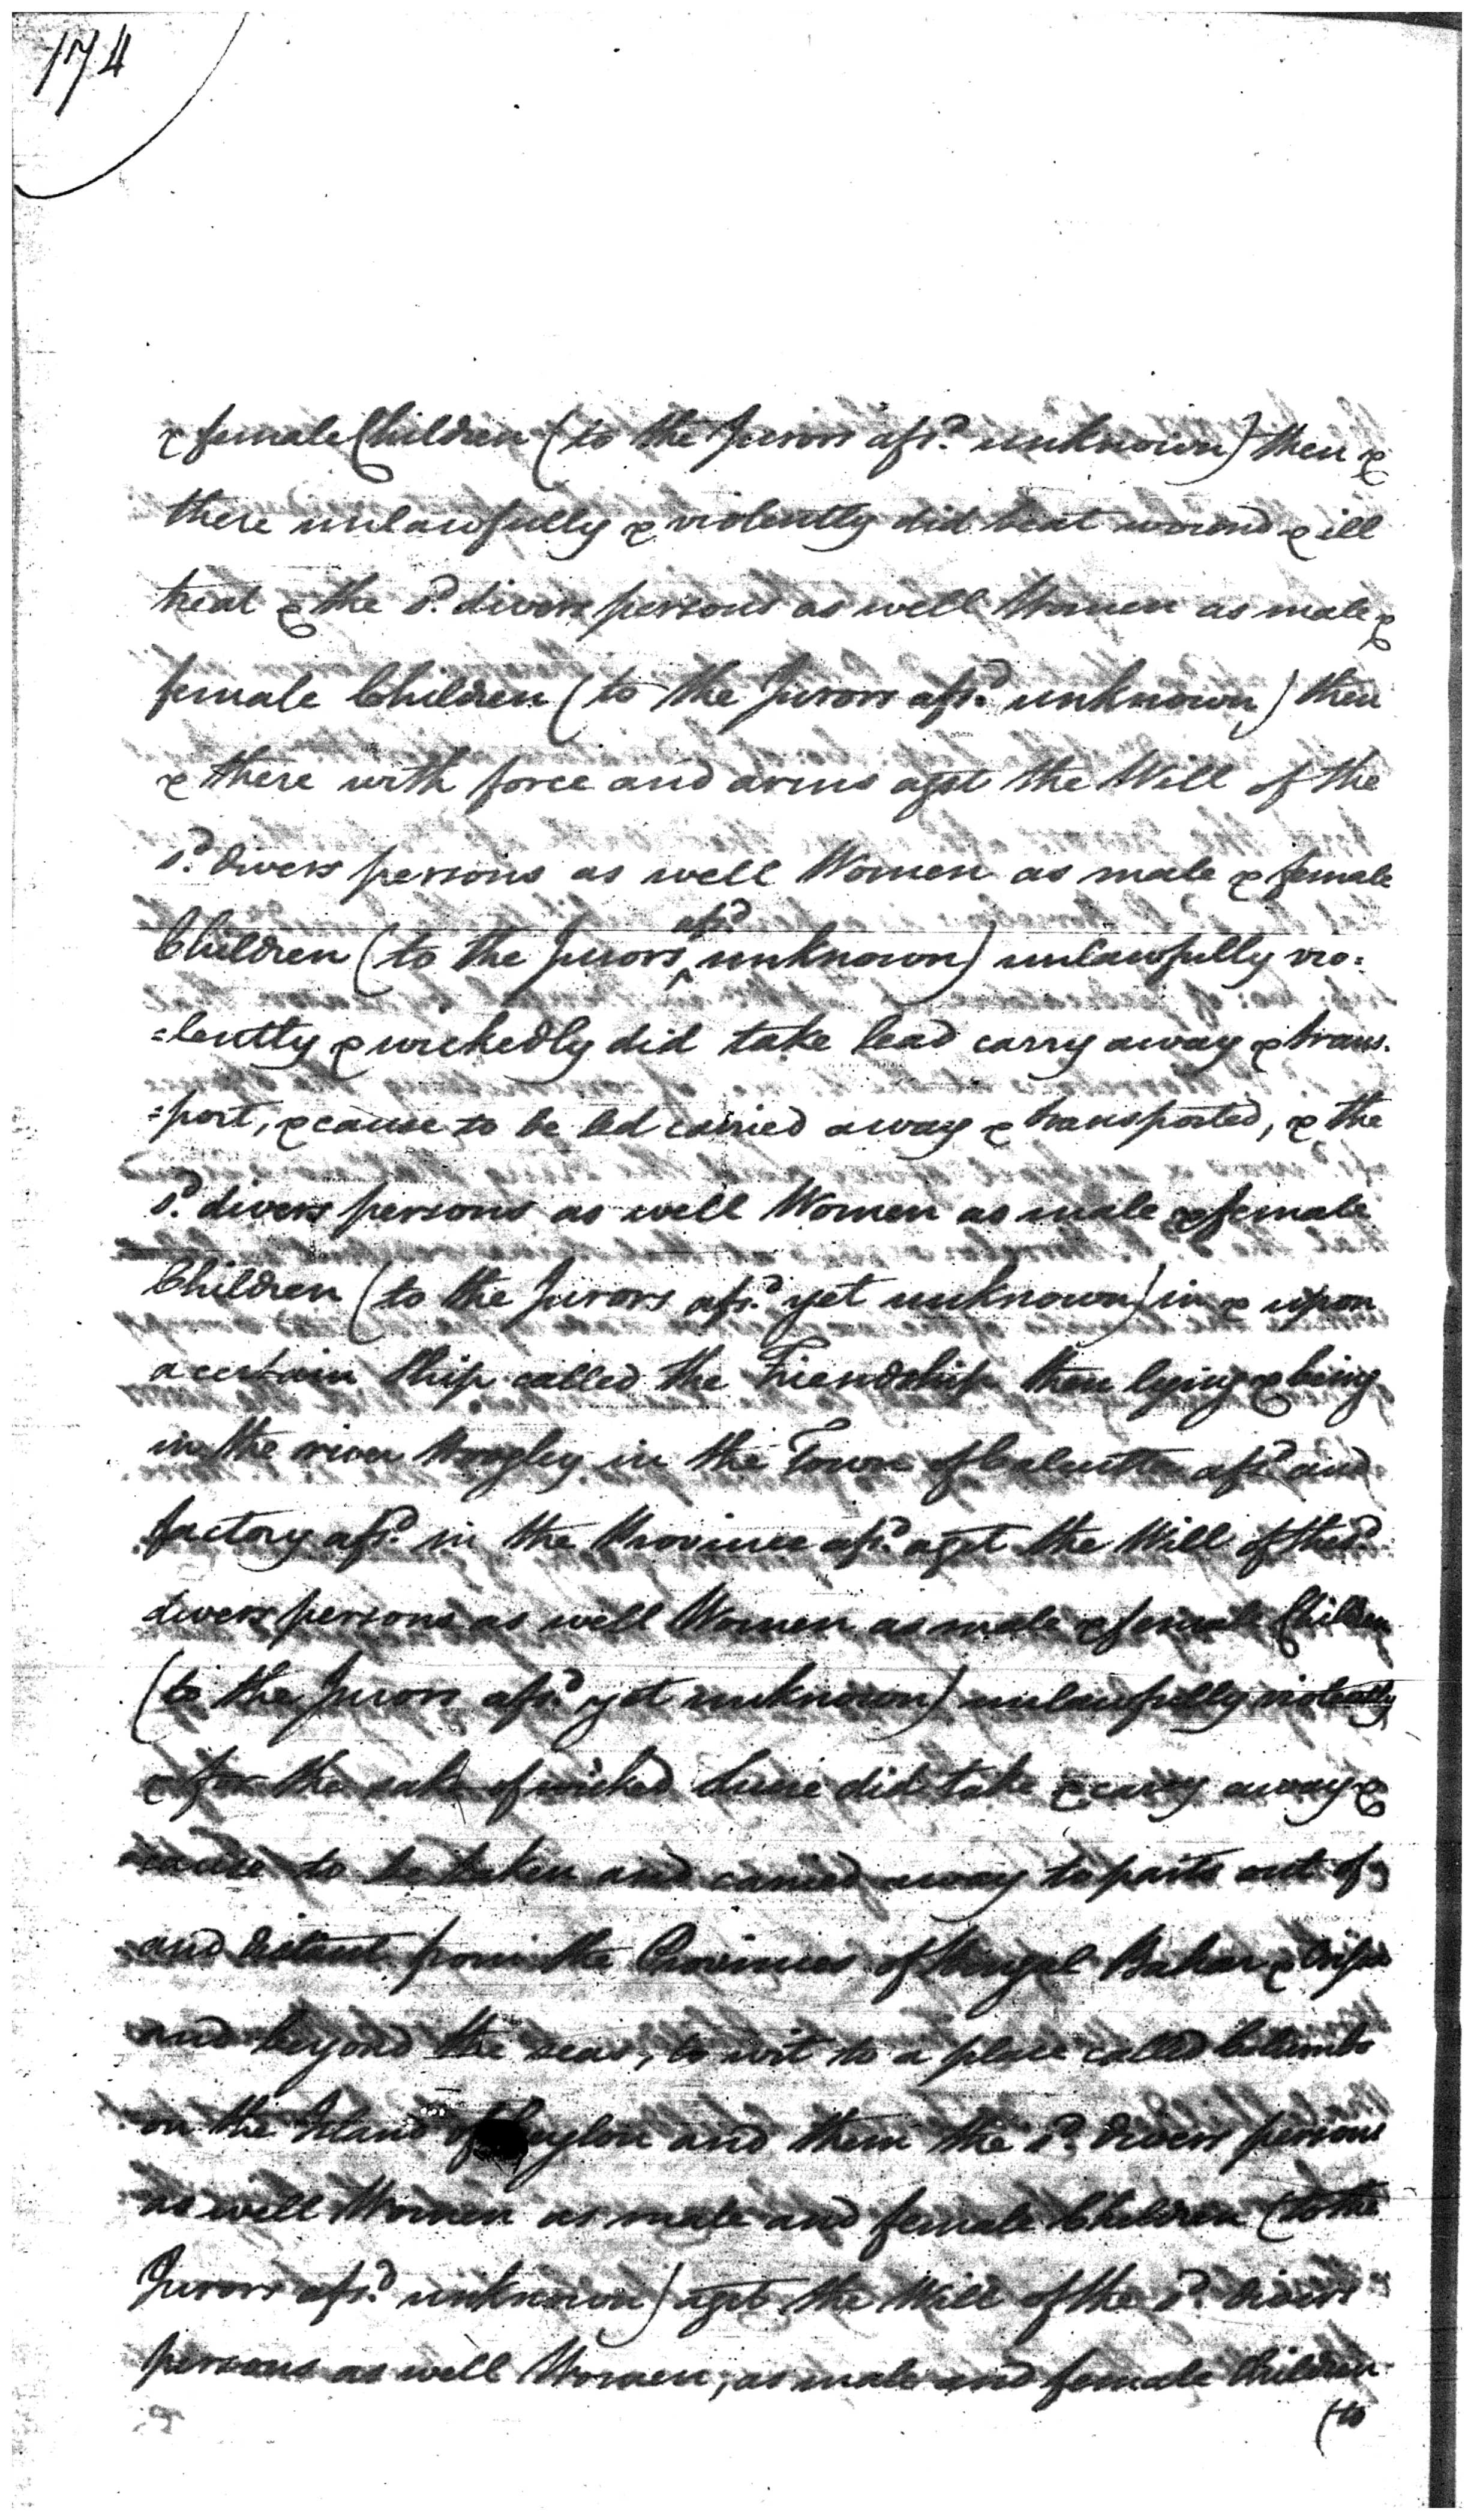 174
& female Children (to the Jurors afsd. unknown) then &
there unlawfully & violently did beat wound & ill
treat & the sd. divers persons as well Women as male &
female Children (to the Jurors afsd. unknown) then
& there with force and arms agst the Will of the
sd. divers persons as well Women as male & female
Children (to the Jurors afsd unknown) unlawfully vio=
=lently & wickedly did take lead carry away & trans.
=port, & cause to be led carried away & transported, & the
sd. divers persons as well Women as male & female
Children (to the Jurors afsd. yet unknown) in & upon
a certain Ship called the Friendship then lying & being
in the river Hoogley in the Town of Calcutta afsd and
factory afsd. in the Province afsd. agst the Will of the sd.
divers persons as well Women as male & female Children
(to the Jurors afsd. yet unknown) unlawfully violently
& for the sake of wicked lucre did take & carry away &
cause to be taken and carried away to parts out of
and distant from the Provinces of Bengal Bahar & Orissa
and beyond the seas, to wit to a place called Columbo
on the Island of Ceylon and them the sd. divers persons
as well Women as male and female Children (to the
Jurors afsd. unknown) agst the Will of the sd. divers
persons as well Women, as male and female Children
(to